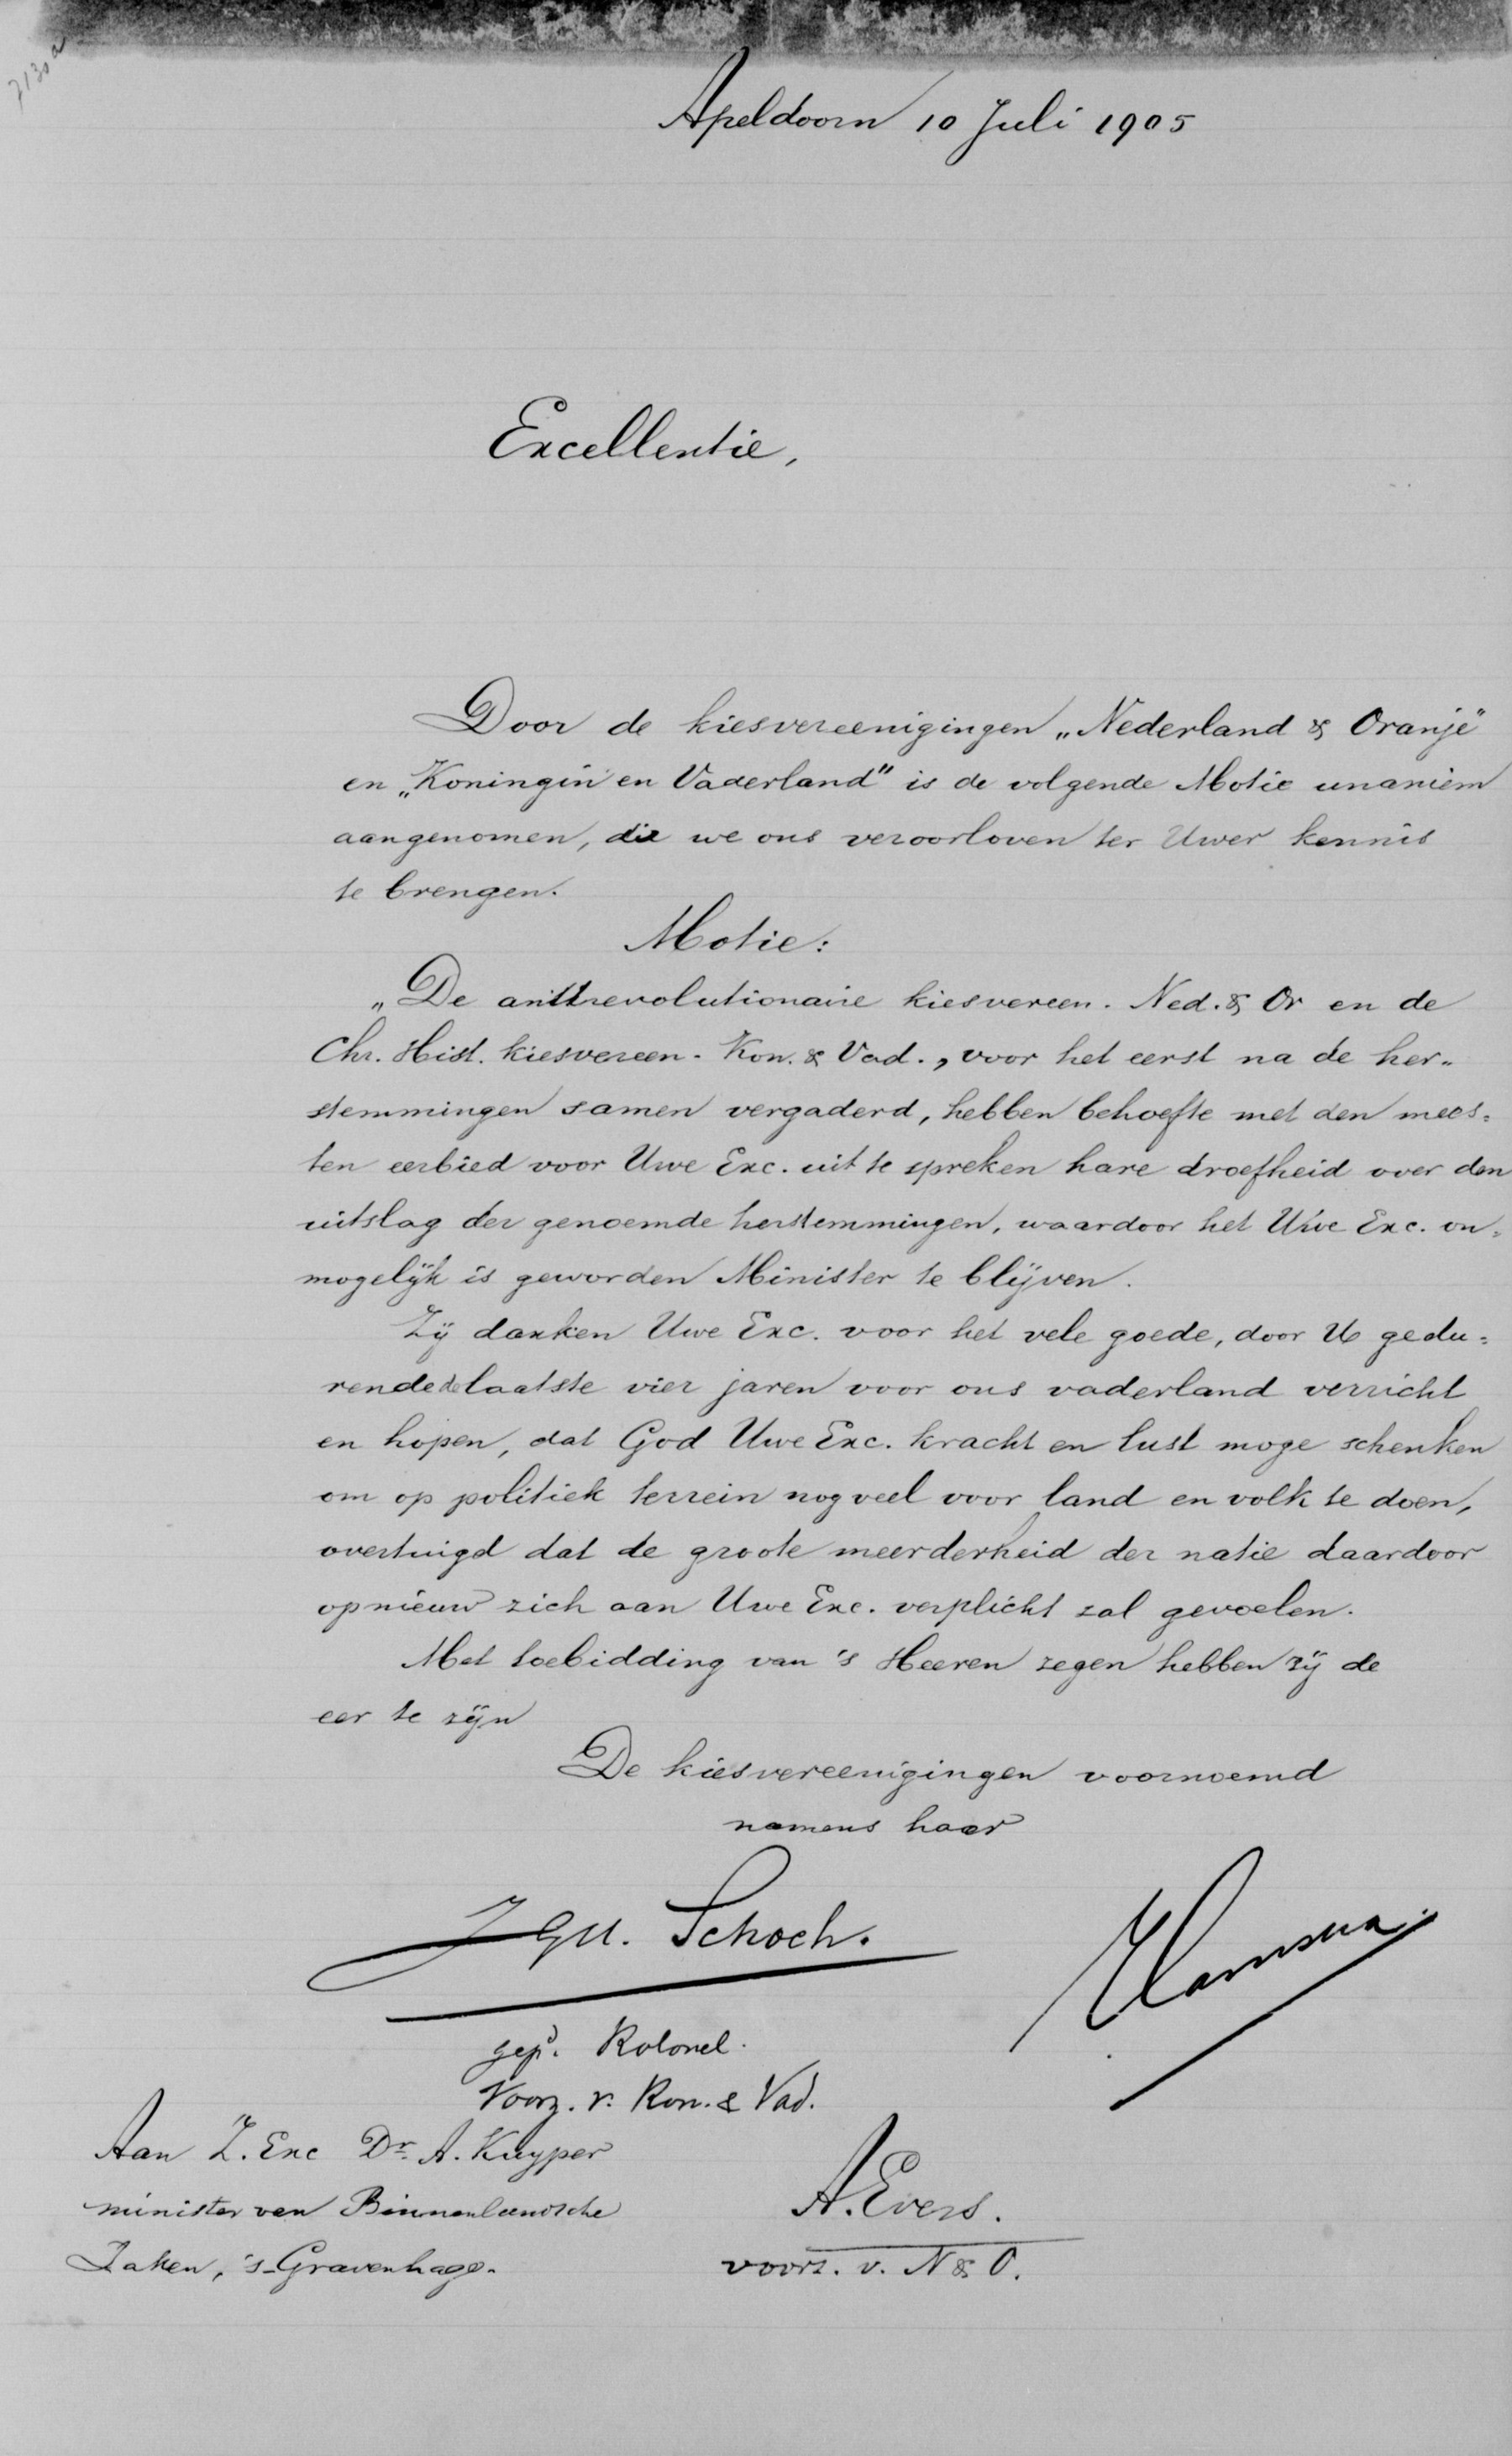 7130a
Apeldoorn 10 Juli 1905
Excellentie,
Door de kiesvereenigingen „Nederland & Oranje"
en „Koningin en Vaderland" is de volgende Motie unaniem
aangenomen, die we ons veroorloven ter Uwer kennis
te brengen.
Motie:
„De antirevolutionaire kiesvereen. Ned. & Or en de
Chr. Hist. kiesvereen. Kon. & Vad., voor het eerst na de her-
stemmingen samen vergaderd, hebben behoefte met den mees=
ten eerbied voor Uwe Exc. uit te spreken hare droefheid over den
uitslag der genoemde herstemmingen, waardoor het Uwe Exc. on=
mogelijk is geworden Minister te blijven.
Zij danken Uwe Exc. voor het vele goede, door U gedu=
rende de laatste vier jaren voor ons vaderland verricht
en hopen, dat God Uwe Exc. kracht en lust moge schenken
om op politiek terrein nog veel voor land en volk te doen,
overtuigd dat de groote meerderheid der natie daardoor
opnieuw zich aan Uwe Exc. verplicht zal gevoelen.
Met toebidding van 's Heeren zegen hebben zij de
eer te zijn
De kiesvereenigingen voornoemd
namens haar
Schoch.
gep. Kolonel.
Voorz. v. Kon. & Vad.
Aan Z. Exc Dr. A. Kuyper
minister van Binnenlandsche
Zaken, 's-Gravenhage.
A. Evers.
voorz. v. N & O.